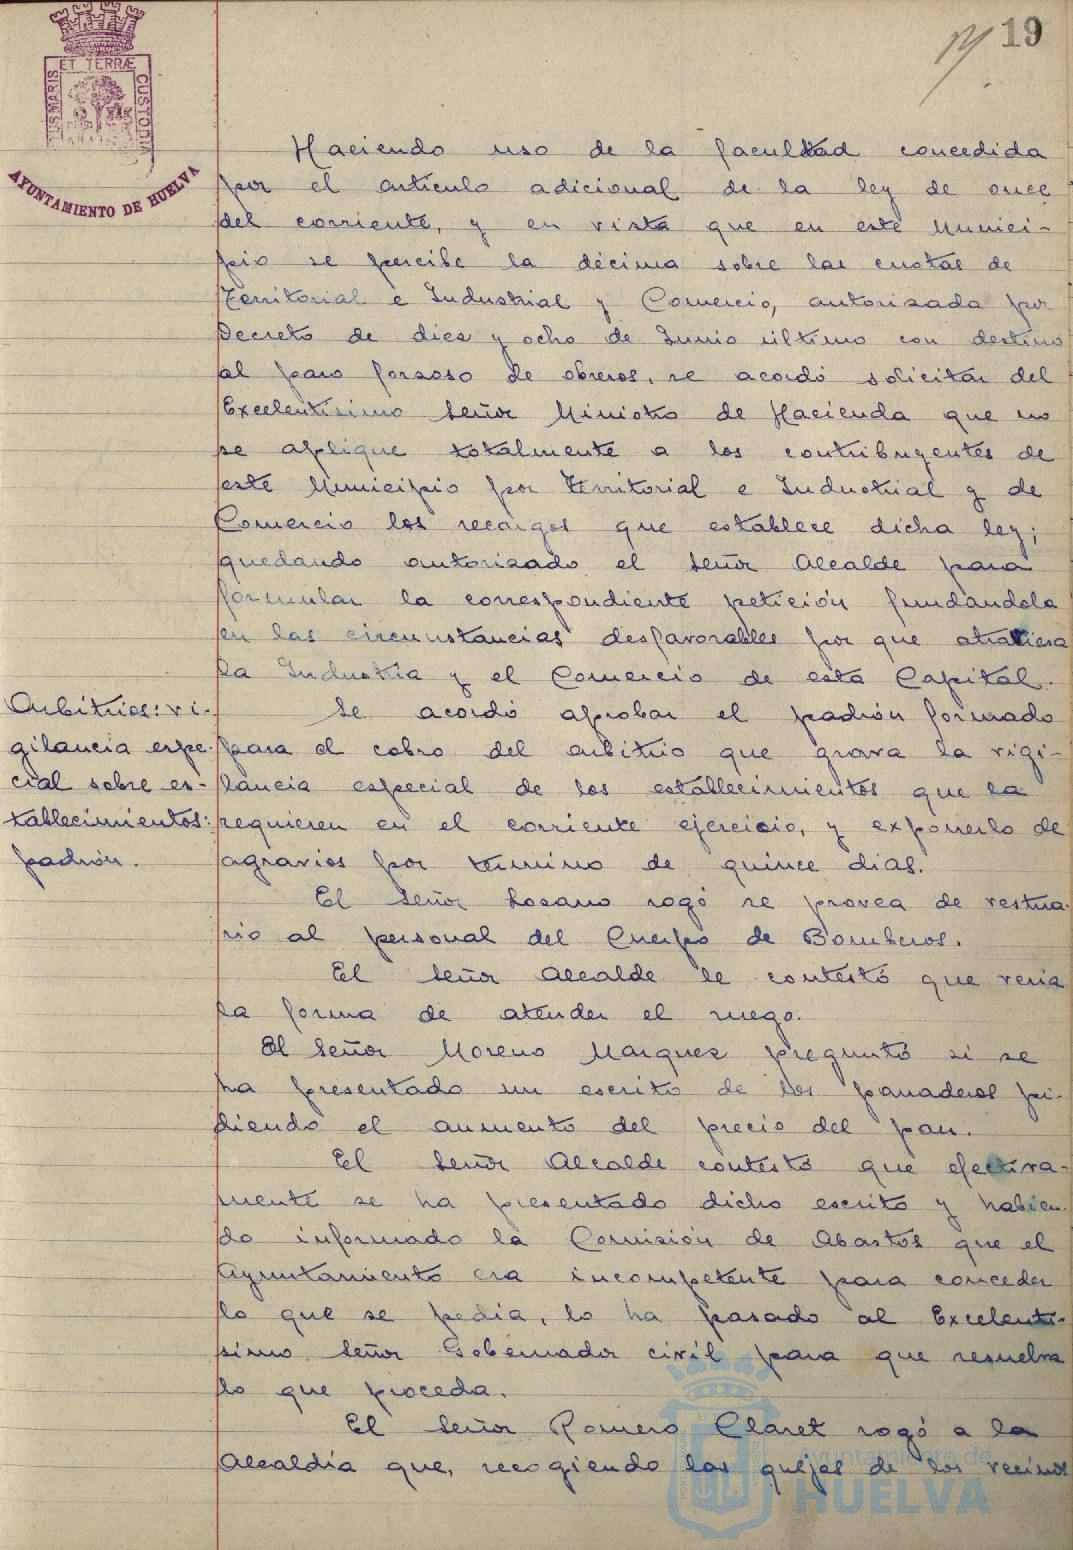 19
19
ET TERRÆ
US MARIS
CUSTODIA
AYUNTAMIENTO DE HUELVA
Haciendo uso de la facultad concedida
por el artículo adicional de la ley de once
del corriente, y en vista que en este Munici-
pio se percibe la décima sobre las cuotas de
Territorial e Industrial y Comercio, autorizada por
Decreto de diez y ocho de Junio último con destino
al paro forzoso de obreros, se acordó solicitar del
Excelentísimo Señor Ministro de Hacienda que no
se aplique totalmente a los contribuyentes de
este Municipio por Territorial e Industrial y de
Comercio los recargos que establece dicha ley;
quedando autorizado el Señor Alcalde para
formular la correspondiente petición fundandola
en las circunstancias desfavorables por que atraviesa
la Industria y el Comercio de esta Capital.
Arbitrios: vi-
gilancia espe-
cial sobre es-
tablecimientos:
padrón.
Se acordó aprobar el padrón formado
para el cobro del arbitrio que grava la vigi-
lancia especial de los establecimientos que la
requieren en el corriente ejercicio, y exponerlo de
agravios por termino de quince dias.
El Señor Lozano rogó se provea de vestua-
rio al personal del Cuerpo de Bomberos.
El Señor Alcalde le contestó que vería
la forma de atender el ruego.
El Señor Moreno Marquez preguntó si se
ha presentado un escrito de los panaderos pi-
diendo el aumento del precio del pan.
El Señor Alcalde contestó que efectiva-
mente se ha presentado dicho escrito y habien-
do informado la Comisión de Abastos que el
Ayuntamiento era incompetente para conceder
lo que se pedia, lo ha pasado al Excelentí-
simo Señor Gobernador civil para que resuelva
lo que proceda.
El Señor Romero Claret rogó a la
Alcaldía que, recogiendo las quejas de los vecinos
Ayuntamiento de
HUELVA